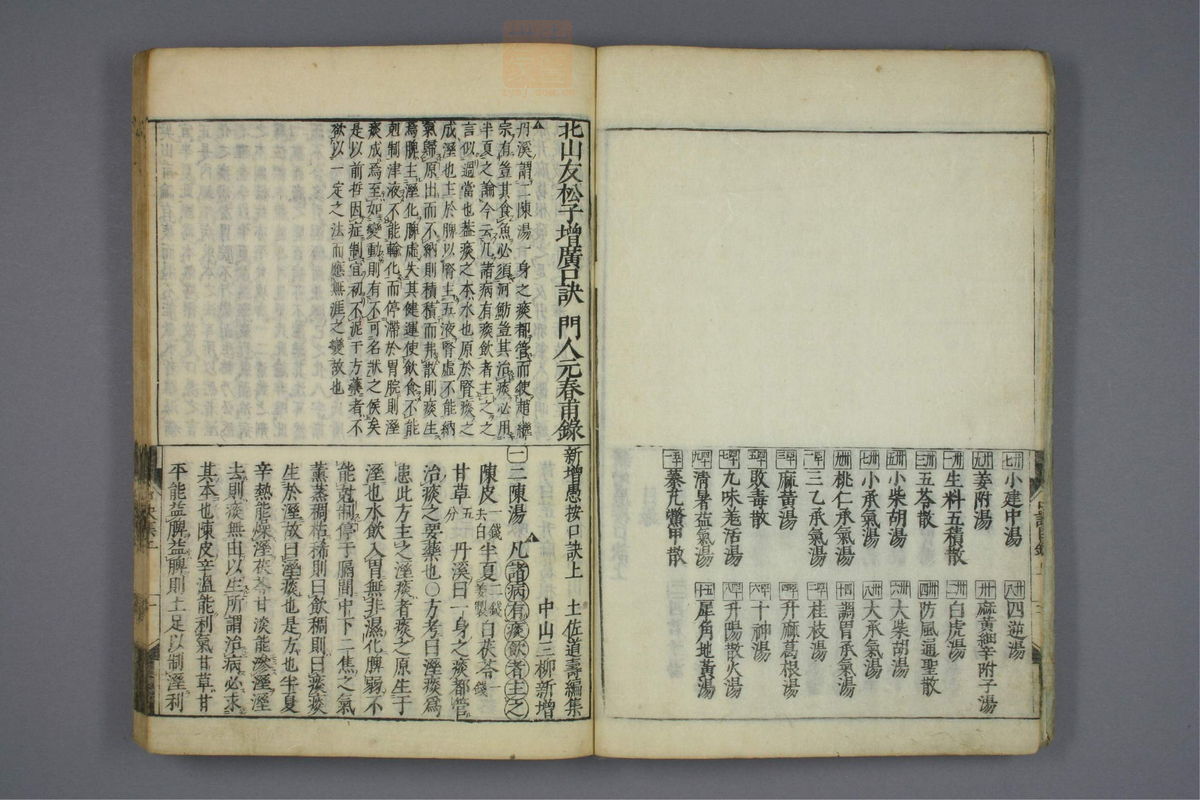 小建中湯
四逆湯
姜附湯
麻黄細辛附子湯
生料五積散
白虎湯
五苓散
防風通聖散
小柴胡湯
大柴胡湯
小承氣湯
大承氣湯
桃仁承氣湯
調胃承氣湯
三乙承氣湯
桂枝湯
麻黄湯
升麻葛根湯
敗毒散
十神湯
九味羌活湯
升陽散火湯
清暑益氣湯
犀角地黄湯
秦艽鱉甲散
北山友松子增廣口訣 門人元春甫錄
丹溪謂二陳湯一身之痰都管而使趙
宗有豈其食魚必須河魴豈其治痰必用
半夏之論今云凡諸病有痰飲者主之之
言似過當也葢痰之本水也原於腎痰之
成溼也主於脾以腎主五液腎虚不能納
氣歸原出而不納則積積而弗散則痰生
焉脾主溼化脾虚失其健運使飲食不能
剋制津液不能輸化而停滯於胃脘則溼
痰成焉至如變動則有不可名狀之候矣
是以前哲因症制宜初不泥于方藥者不
欲以一定之法而應無涯之變故也
新增愚按口訣上 土佐道壽編集
中山三柳新增
一 二陳湯 凡諸病有痰飲者主之
陳皮一錢去白 半夏二錢 白茯苓一錢
甘草五分 丹溪曰一身之痰都管
治痰之要藥也○方考曰溼痰爲
患此方主之溼痰者痰之原生于
溼也水飲入胃無非濕化脾弱不
能剋制停于膈間中下二焦之氣
薰蒸稠粘稀則曰飲稠則曰痰痰
生於溼故曰溼痰也是方也半夏
辛熱能燥溼茯苓甘淡能滲溼溼
去則痰無由以生所謂治病必求
其本也陳皮辛溫能利氣甘草甘
平能益脾益脾則土足以制溼利